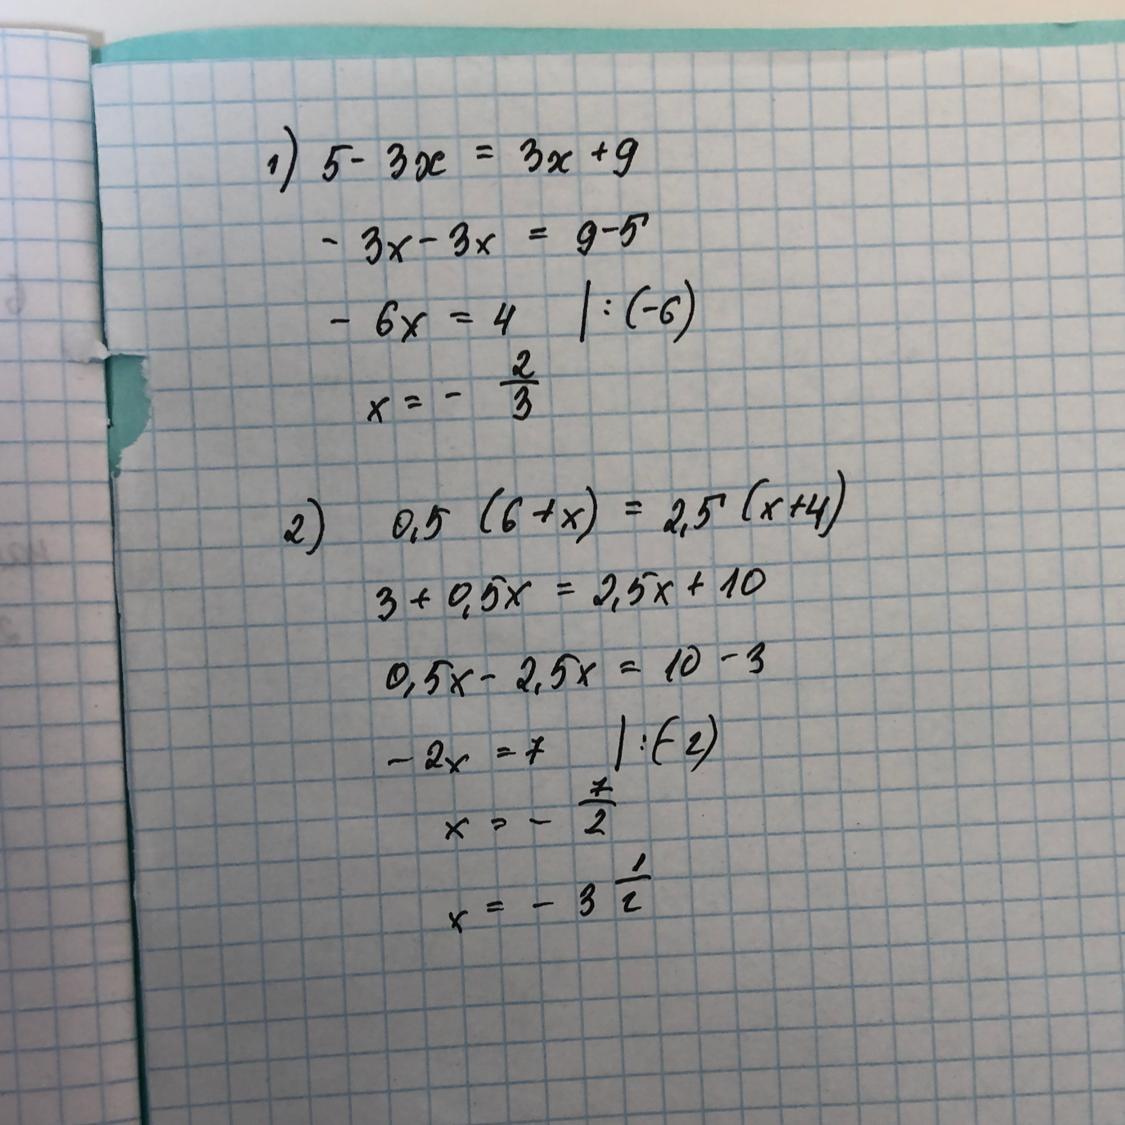 1) 5 - 3x = 3x + 9
- 3x - 3x = 9 - 5
- 6x = 4 | : (-6)
x = - 2/3
2) 0,5 (6 + x) = 2,5 (x + 4)
3 + 0,5x = 2,5x + 10
0,5x - 2,5x = 10 - 3
- 2x = 7 | : (- 2)
x = - 7/2
x = - 3 1/2